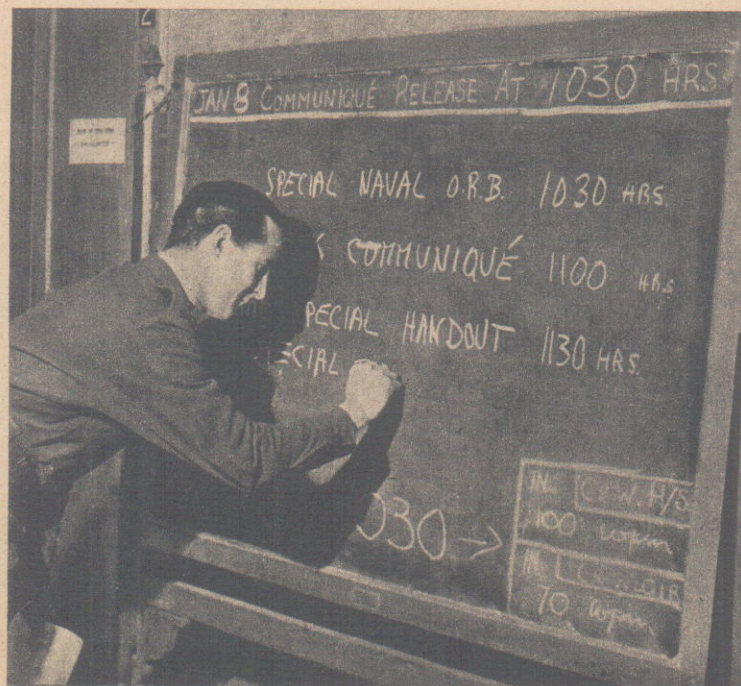 2
JAN 8 COMMUNIQUÉ RELEASE AT 1030 HRS
SPECIAL NAVAL O.R.B. 1030 HRS.
COMMUNIQUÉ 1100 HRS
PECIAL HANDOUT 1130 HRS.
ECIAL
030 →
IN
100
IN
70